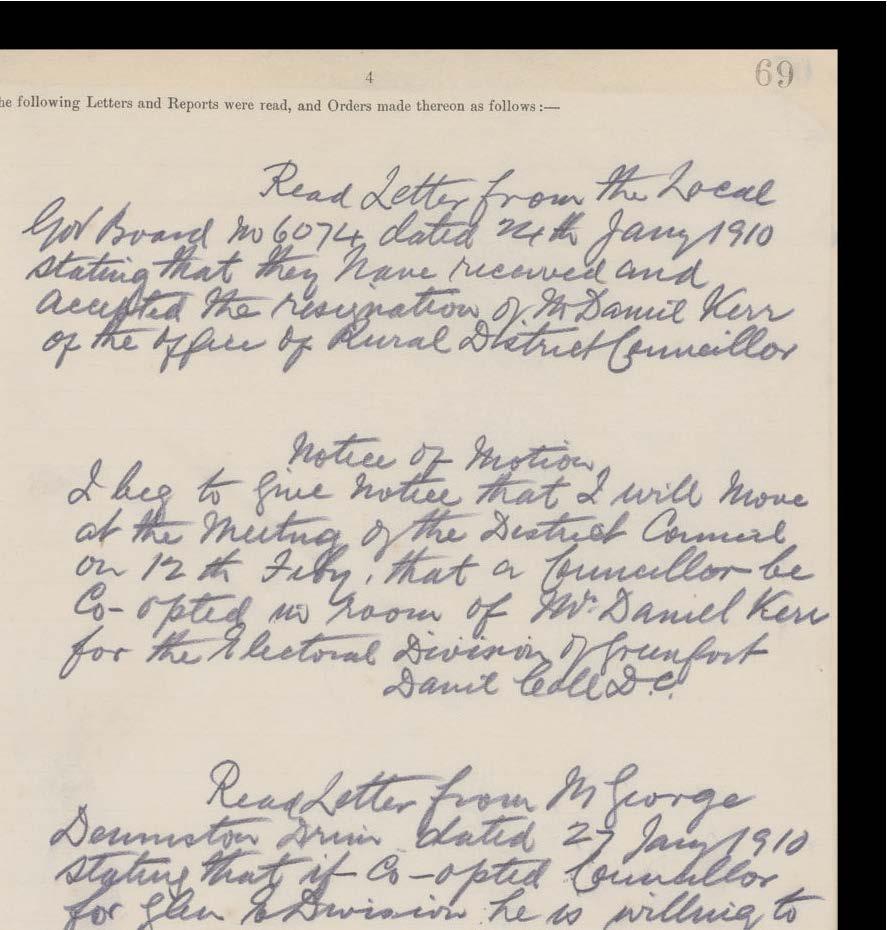 4
69
he following Letters and Reports were read, and Orders made thereon as follows :—
Read Letter from the Local
Gov Board No 6074 dated 24th Jany 1910
stating that they have received and
accepted the resignation of Mr Daniel Kerr
of the Office of Rural District Councillor
Notice of Motion
I beg to give notice that I will Move
at the Meeting of the District Council
on 12th Feby, that a Councillor be
Co-opted in room of Mr Daniel Kerr
for the Electoral Division of Greenfort
Daniel Coll D.C.
Read Letter from Mr George
Denniston Drim dated 27 Jany 1910
stating that if Co-opted Councillor
for Glen E Division he is willing to